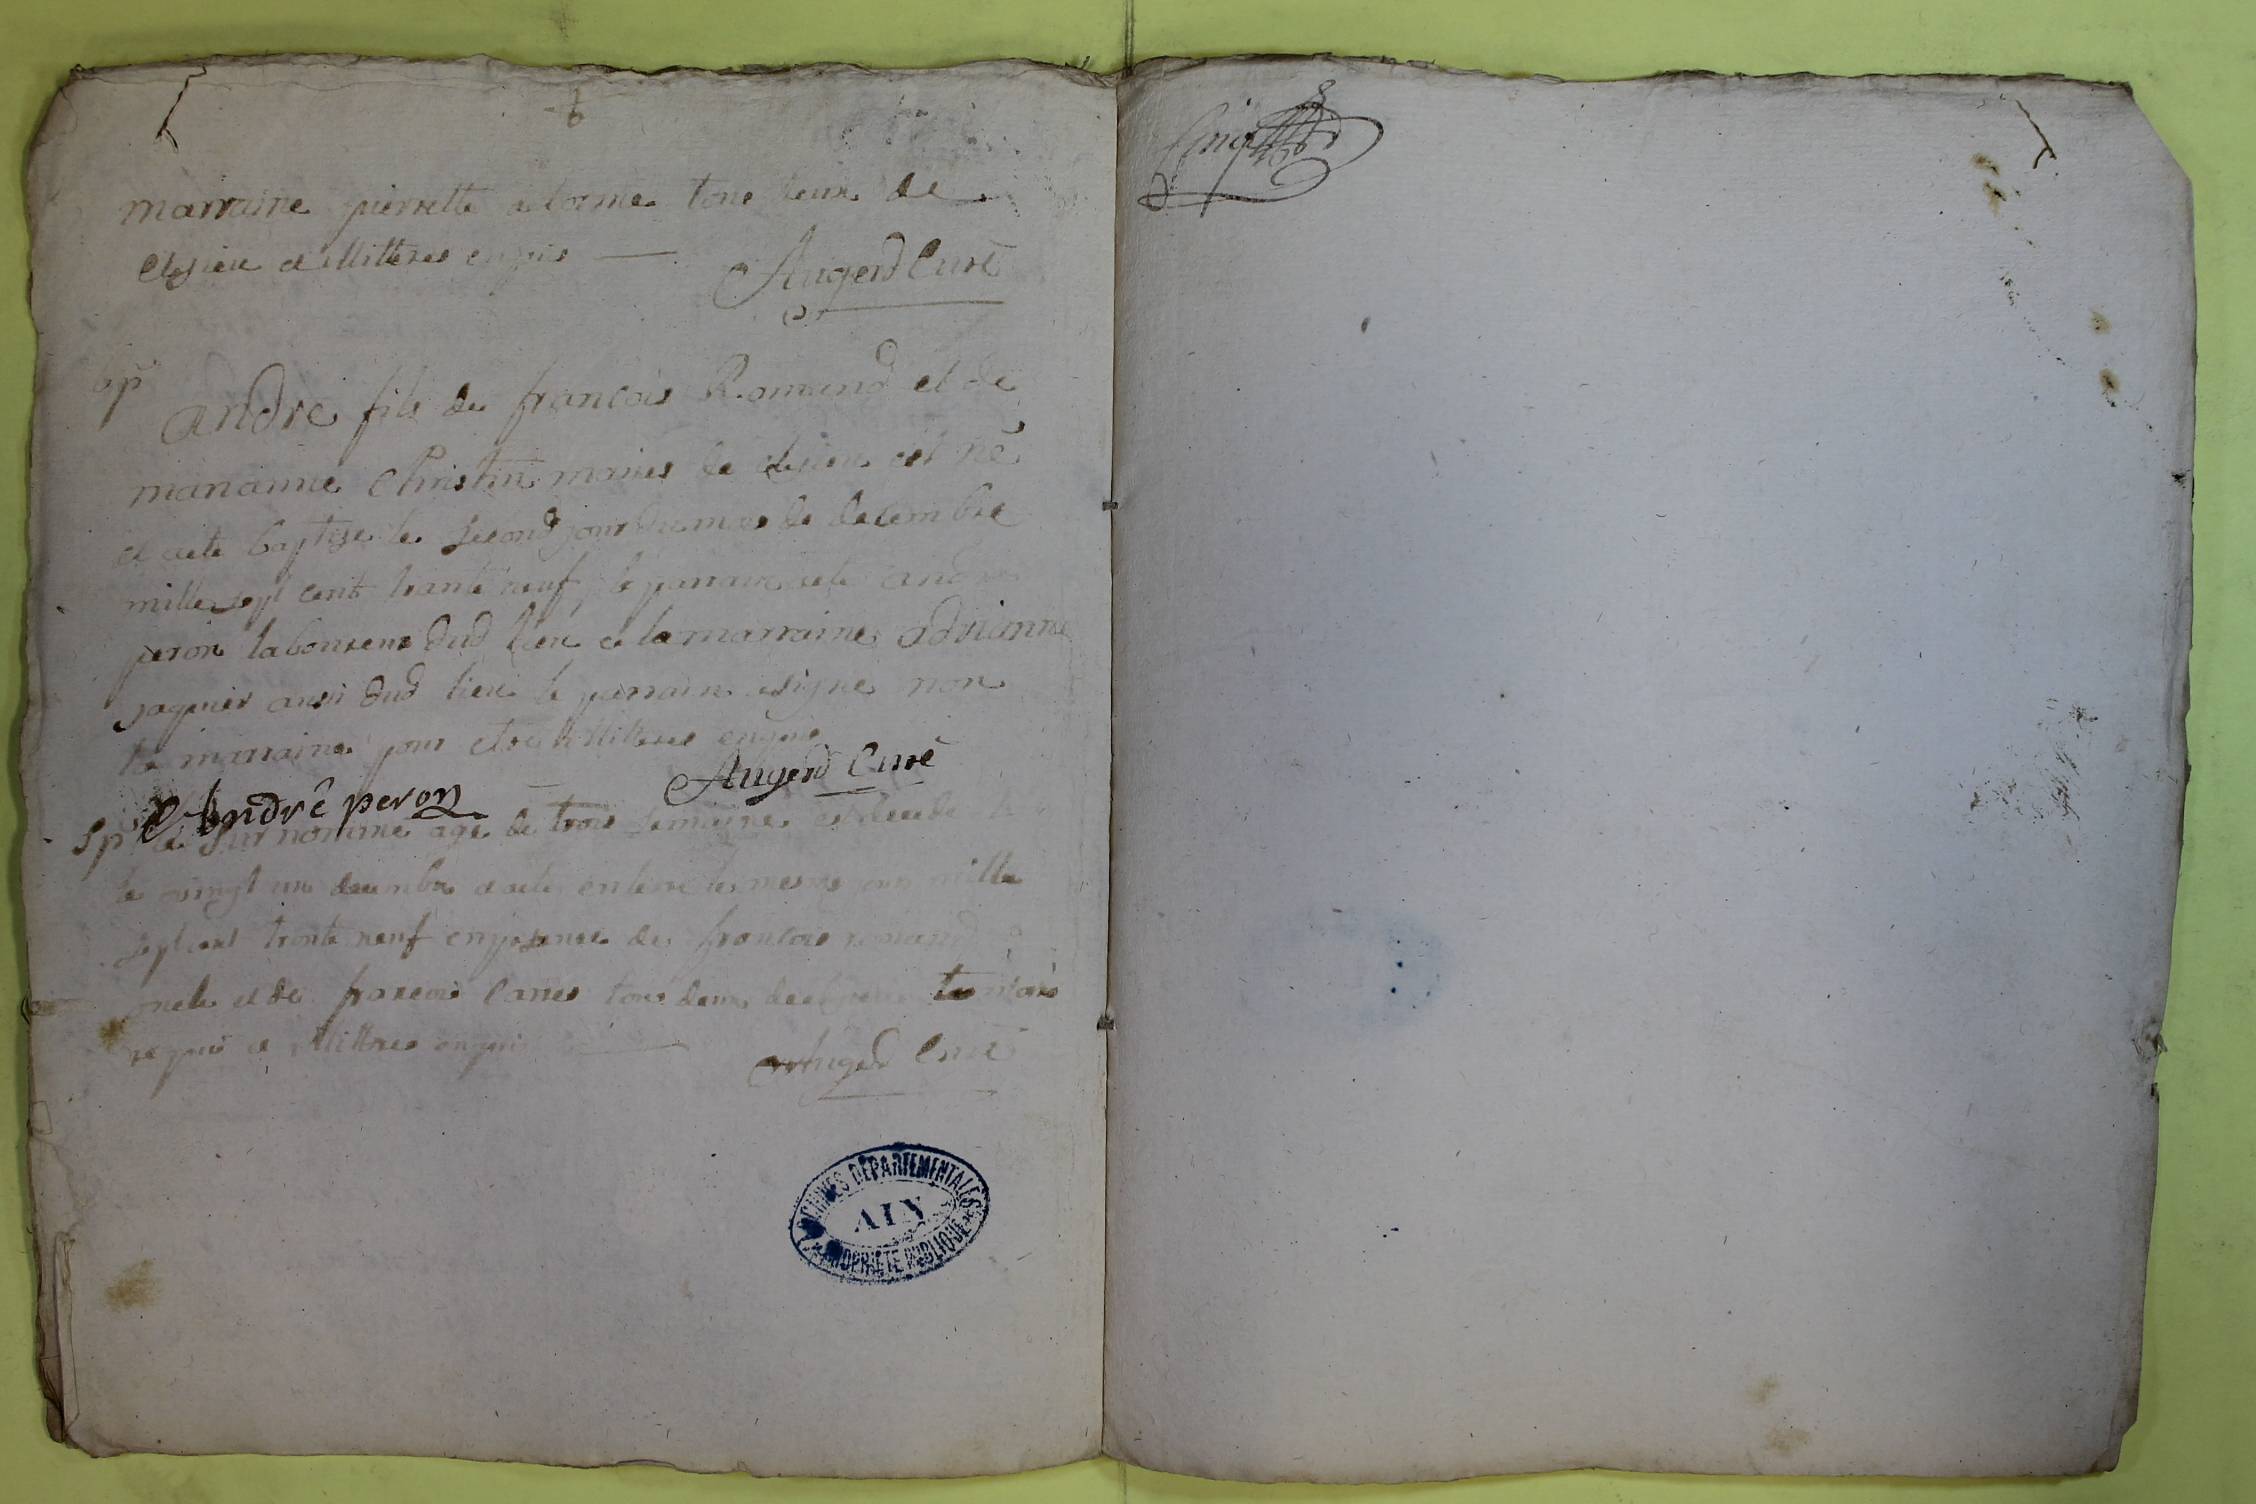 6
marraine pierrette tous deux de
et illitteres enquis
Augerd Curé
bp
andre fils de francois Romand et de
marianne Christin maries de est né
et a ete baptise le second jour du mois de decembre
mille sept cent trante neuf, le parrain a ete andre
peron laboureur dud lieu et la marraine adrianne
jaquier aussi dud lieu le parrain a signe non
la marraine pour etre illitteree enquise
Augerd Curé
André peron
Sp le surnommé agé de trois semaines est decede
le vingt un decembre a ete enterre le mesme jour mille
sept cent trante neuf en presence de francois romand
et de francois tous deux temoins
requis et illitteres enquis
Augerd Curé
ARCHIVES DÉPARTEMENTALES
AIN
PROPRIÉTÉ PUBLIQUE